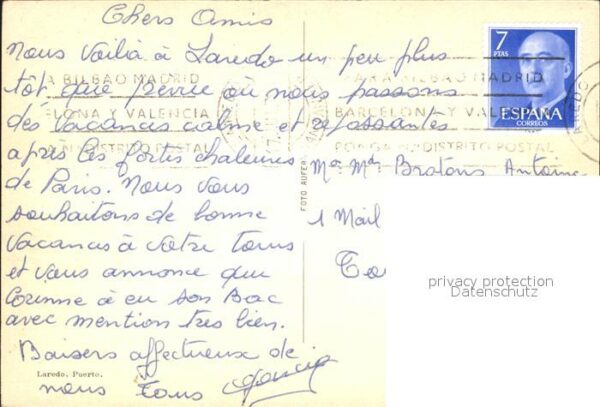 Chers Amis
Nous Voilà à Laredo un peu plus
tôt que prévu où nous passons
des vacances calme et reposantes
après les fortes chaleures
de Paris. Nous vous
souhaitons de bonne
vacances à votre tours
et vous annonce que
Corinne à eu son Bac
avec mention tres bien.
Baisers affectueux de
nous tous
Laredo. Puerto.
FOTO
7
PTAS
ESPAÑA
CORREOS
BILBAO MADRID
BARCELONA Y VALENCIA
PONGA DISTRITO POSTAL
LAREDO
Mr Md Bratons Antoine
1 Mail
privacy protection
Datenschutz